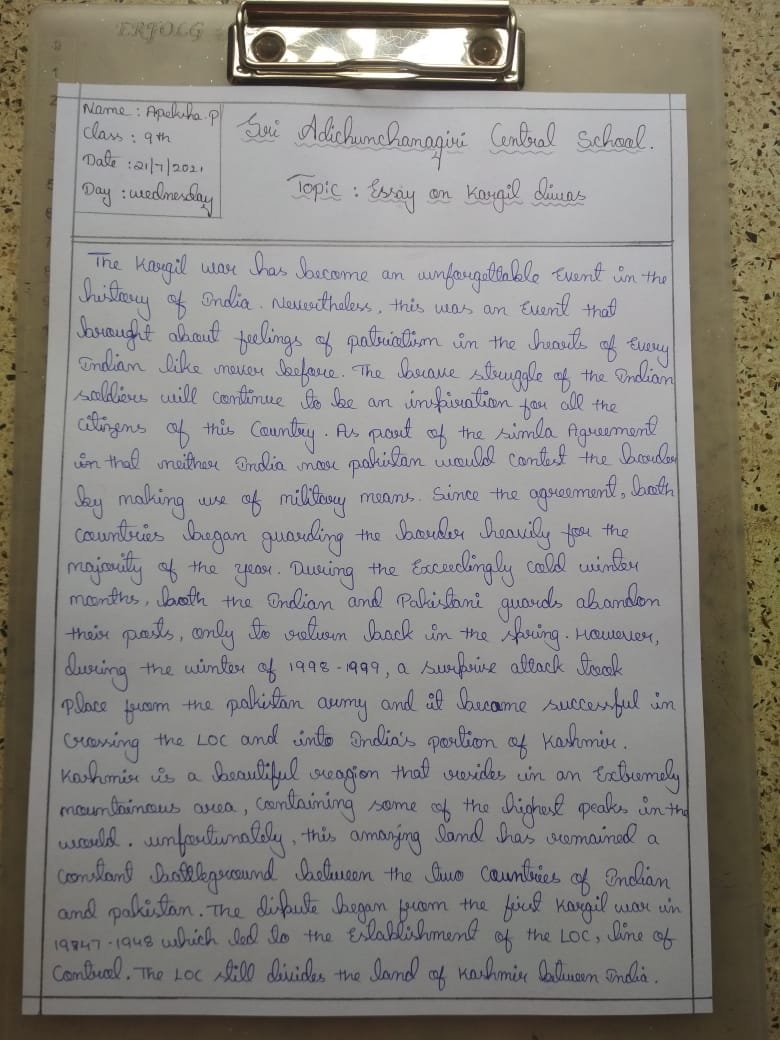 ERFOLG
Name : Apeksha.P
Class : 9th
Date : 21/7/2021
Day : wednesday
Sri Adichunchanagiri Central School.
Topic : Essay on Kargil diwas
The Kargil war has become an unforgettable Event in the
history of India. Nevertheless, this was an Event that
brought about feelings of patriotism in the hearts of Every
Indian like never before. The brave struggle of the Indian
soldiers will continue to be an inspiration for all the
citizens of this Country. As part of the simla Agreement
in that neither India nor pakistan would contest the border
by making use of military means. Since the agreement, both
countries began guarding the border heavily for the
majority of the year. During the Exceedingly cold winter
months, both the Indian and Pakistani guards abandon
their posts, only to return back in the spring. However,
during the winter of 1998-1999, a surprise attack took
Place from the pakistan army and it became successful in
Crossing the LOC and into India's portion of Kashmir.
Kashmir is a beautiful reagion that resides in an Extremely
mountainous area, Containing some of the highest peaks in the
world. unfortunately, this amazing land has remained a
constant battleground between the two Countries of Indian
and pakistan. The dispute began from the first Kargil war in
19847-1948 which led to the Establishment of the LOC, line of
Control. The LOC still divides the land of Kashmir between India.